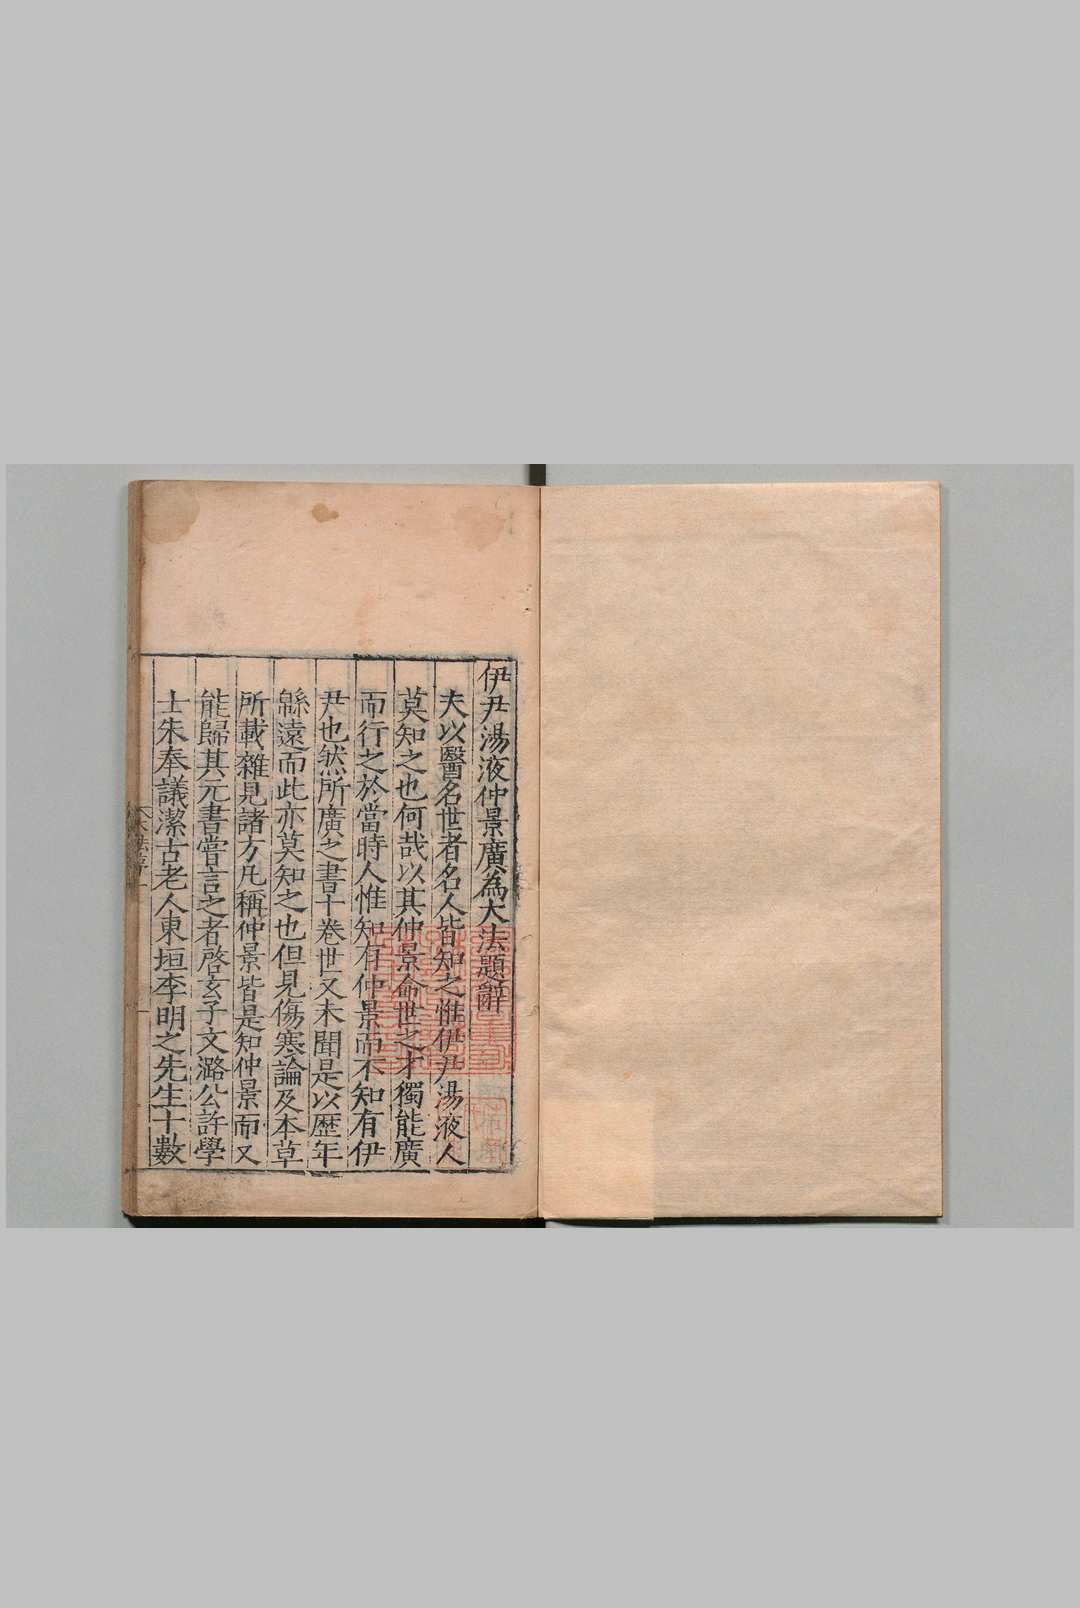 伊尹湯液仲景廣為大法題辭
夫以醫名世者名人皆知之惟伊尹湯液人
莫知之也何哉以其仲景命世之才獨能廣
而行之於當時人惟知有仲景而不知有伊
尹也然所廣之書十卷世又未聞是以歴年
緜遠而此亦莫知之也但見傷寒論及本草
所載雜見諸方凡稱仲景皆是知仲景而又
能歸其元書嘗言之者啓玄子文潞公許學
士朱奉議潔古老人東垣李明之先生十數